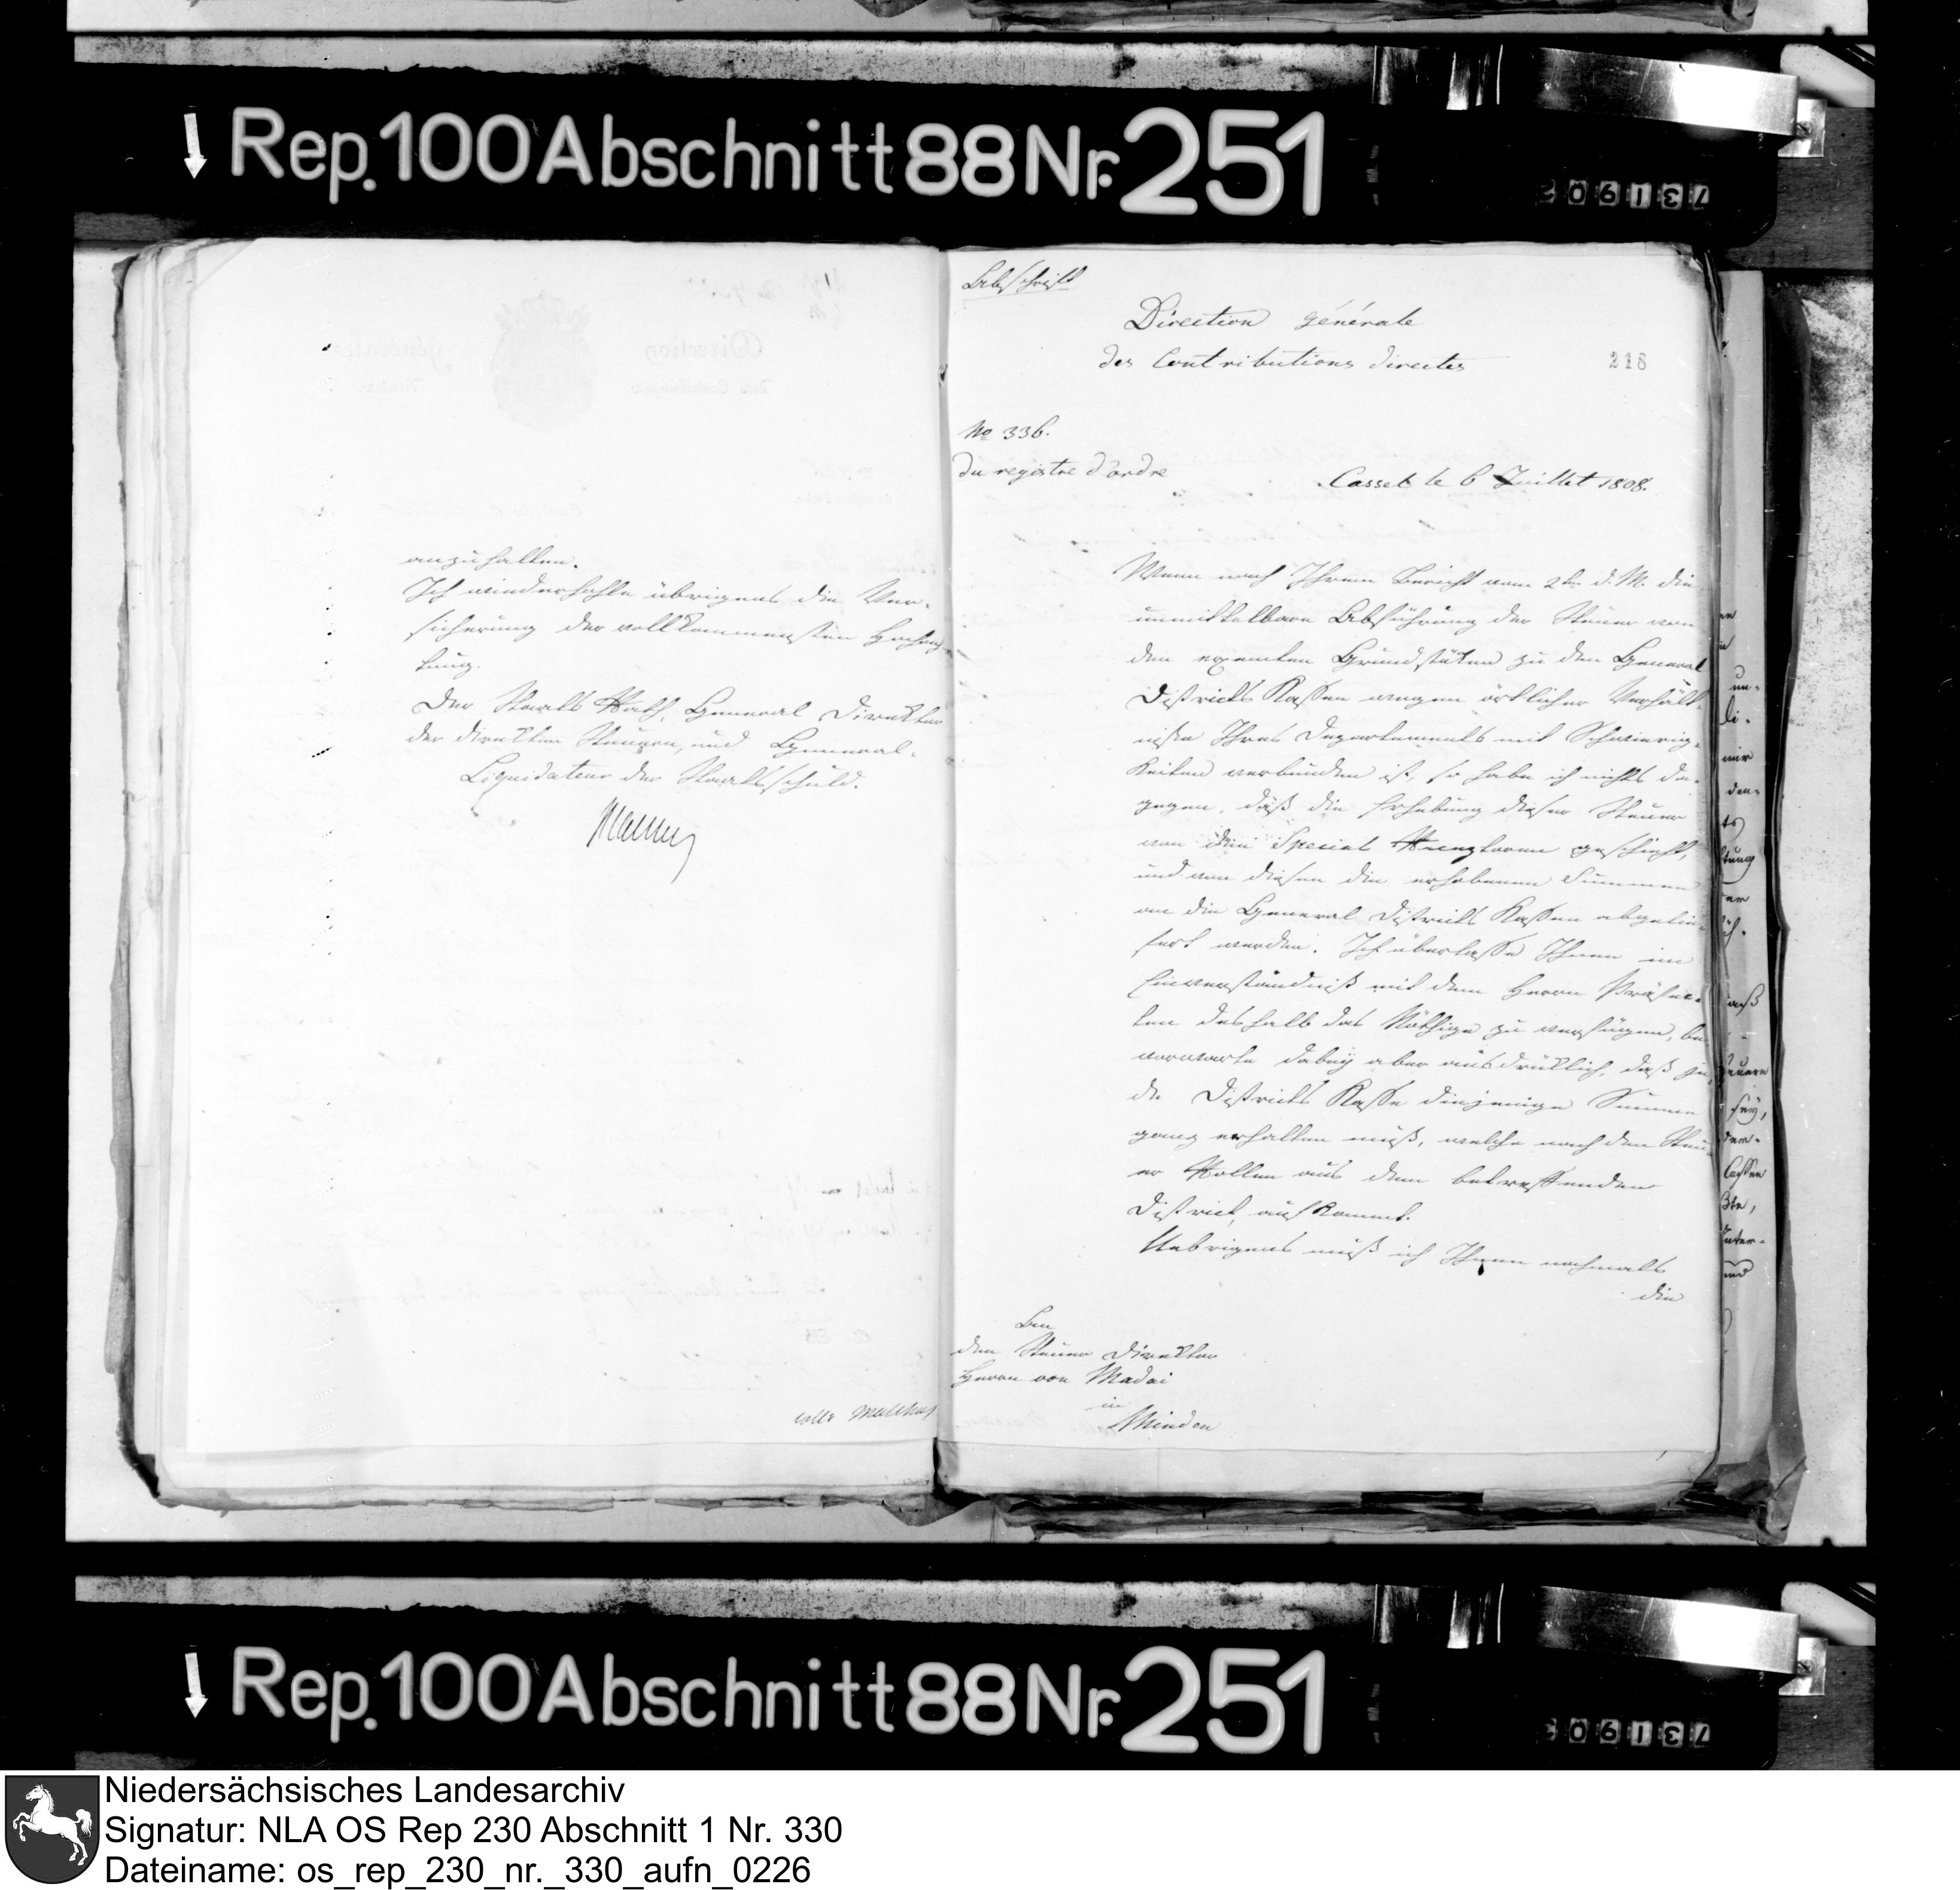 Rep. 100 Abschnitt 88 Nr. 251
anzuhalten.
Ich wiederhohle übrigens die Ver-
sicherung der vollkommensten Hochach-
tung.
Der Staats Rath, General Direktor
der direkten Steuern, und General-
Liquidateur der Staatsschuld.
Malchus
Abschrift
Direction générale
des Contributions directes
218
No 336.
du registre d'ordre
Cassel le 6 Juillet 1808.
Wenn nach Ihrem Bericht vom 2ten d. M. die
unmittelbare Abführung der Steuer von
den exemten Grundstüken zu den General
Districts Kassen wegen örtlicher Verhält-
niße Ihres Departements mit Schwierig-
keiten verbunden ist, so habe ich nichts da-
gegen, daß die Erhebung dieser Steuer
von den Special Receptoren geschieht,
und von diesen die erhobenen Summen
an die General Districts Kassen abgelie-
fert werden. Ich überlasse Ihnen im
Einverständniß mit dem Herrn Präfec-
ten deshalb das Nöthige zu verfügen, be-
vorworte dabey aber ausdrüklich, daß je-
de Districts Kasse diejenige Summe
ganz erhalten muß, welche nach den Steu-
er Rollen aus dem betreffenden
District, aufkommt.
Uebrigens muß ich Ihnen nochmals
die
An
den Steuer Direktor
Herrn von Madai
in
Minden
Malchus
Rep. 100 Abschnitt 88 Nr. 251
Niedersächsisches Landesarchiv
Signatur: NLA OS Rep 230 Abschnitt 1 Nr. 330
Dateiname: os_rep_230_nr._330_aufn_0226